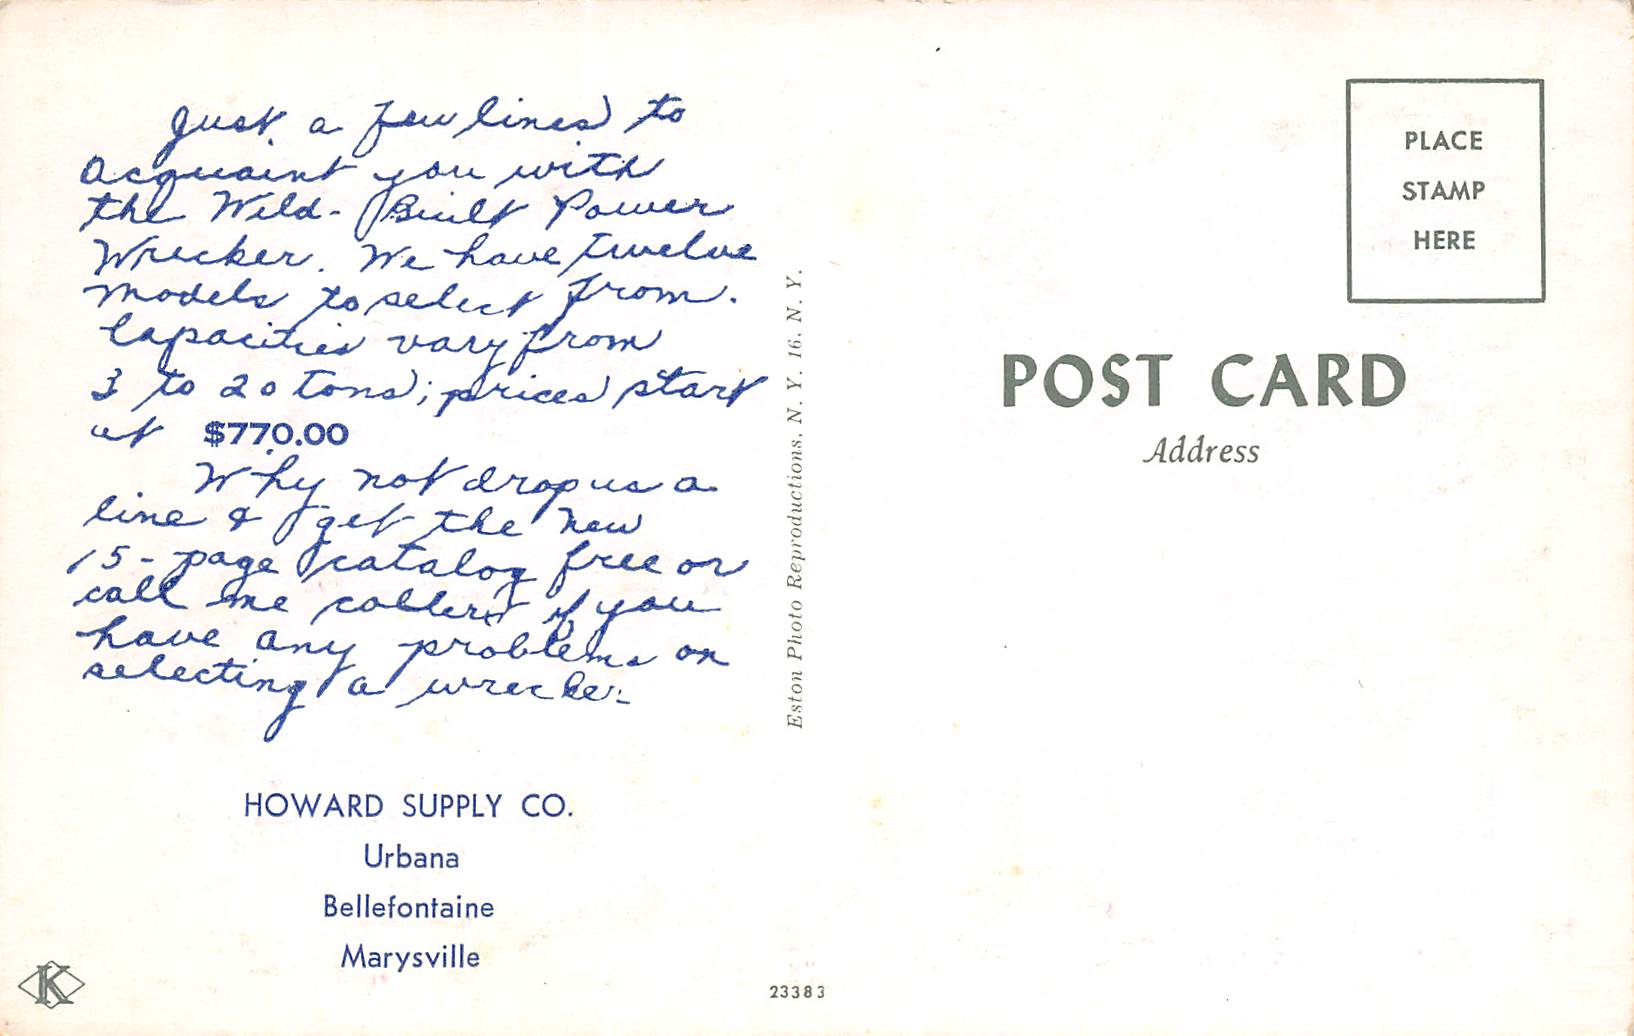 Just a few lines to
acquaint you with
the Wild-Built Power
Wrecker. We have twelve
models to select from.
Capacities vary from
3 to 20 tons; prices start
at $770.00
Why not drop us a
line & get the new
15-page catalog free or
call me collect if you
have any problems on
selecting a wrecker.
HOWARD SUPPLY CO.
Urbana
Bellefontaine
Marysville
K
Eston Photo Reproductions, N. Y. 16, N. Y.
23383
PLACE
STAMP
HERE
POST CARD
Address